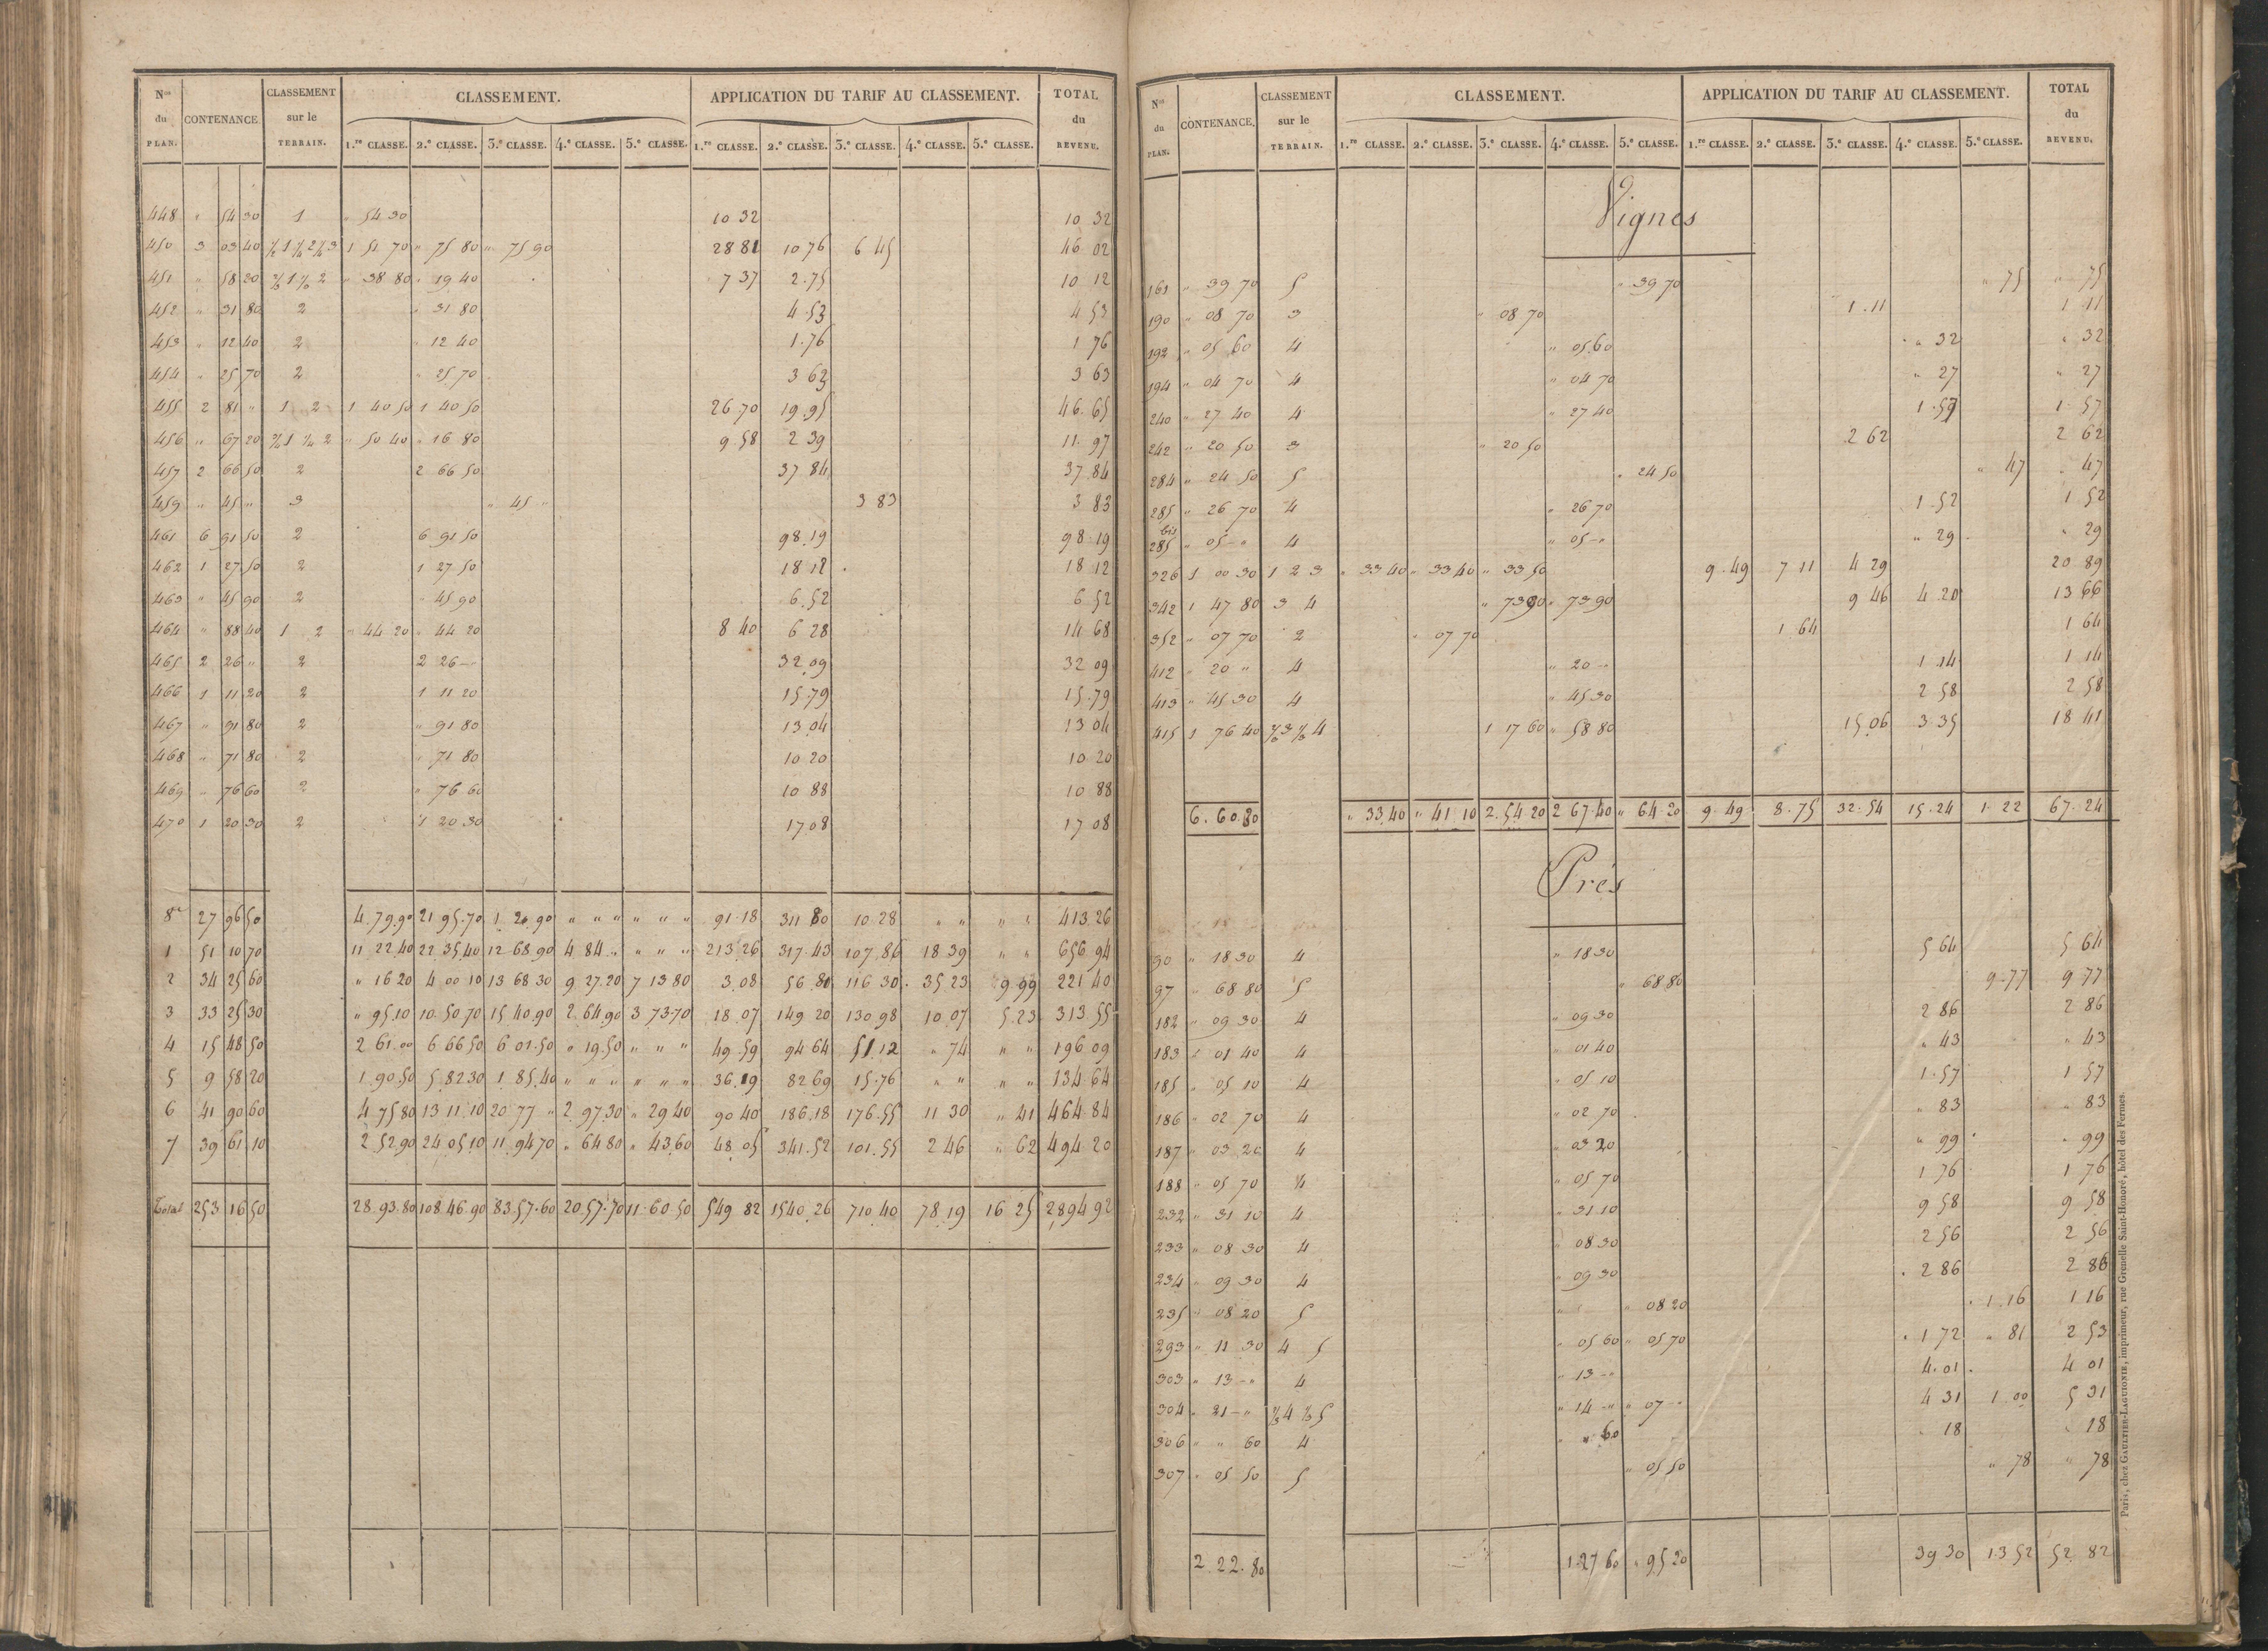 Nos du PLAN. CONTENANCE CLASSEMENT sur le TERRAIN. CLASSEMENT. APPLICATION DU TARIF AU CLASSEMENT. TOTAL du REVENU.
1.re CLASSE. 2.e CLASSE. 3.e CLASSE. 4.e CLASSE. 5.e CLASSE. 1.re CLASSE. 2.e CLASSE. 3.e CLASSE. 4.e CLASSE. 5.e CLASSE.
448 " 54 30 1 " 54 30 10 32 10 32
450 3 03 40 1/2 1 1/4 2 1/4 3 1 51 70 " 75 80 " 75 90 28 81 10 76 6 45 46 02
451 " 58 20 2/3 1 1/3 2 " 38 80 " 19 40 7 37 2.75 10 12
452 " 31 80 2 " 31 80 4.53 4 53
453 " 12 40 2 " 12 40 1.76 1 76
454 " 25 70 2 " 25 70 3 63 3 63
455 2 81 " 1 2 1 40 50 1 40 50 26.70 19.95 46.65
456 " 67 20 3/4 1 1/4 2 " 50 40 " 16 80 9.58 2 39 11.97
457 2 66 50 2 2 66 50 37 84 37.84
459 " 45 " 3 " 45 " 3 83 3 83
461 6 91 50 2 6 91 50 98.19 98.19
462 1 27 50 2 1 27 50 18 12 18 12
463 " 45 90 2 " 45 90 6.52 6 52
464 " 88 40 1 2 " 44 20 " 44 20 8 40 6 28 14 68
465 2 26 " 2 2 26 " 32.09 32 09
466 1 11 20 2 1 11 20 15.79 15.79
467 " 91 80 2 " 91 80 13.04 13 04
468 " 71 80 2 " 71 80 10 20 10 20
469 " 76 60 2 " 76 60 10 88 10 88
470 1 20 30 2 1 20 30 17.08 17 08
8e 27 96 50 4.79.90 21 95.70 1.20.90 " " " " " " 91.18 311 80 10.28 " " " " 413.26
1 51 10 70 11 22.40 22 35.40 12.68.90 4 84 " " " " 213.26 317.43 107.86 18 39 " " 656 94
2 34 25 60 " 16 20 4 00 10 13 68 30 9 27.20 7 13 80 3.08 56.80 116 30 35.23 9.99 221 40
3 33 25 30 " 95.10 10.50 70 15 40.90 2 64.90 3 73.70 18.07 149 20 130.98 10.07 5.23 313.55
4 15 48 50 2 61.00 6 66 50 6 01.50 " 19.50 " " " 49.59 94 64 51.12 " 74 " " 196 09
5 9 58 20 1.90.50 5.82 30 1.85.40 " " " " " " 36.19 82 69 15.76 " " " " 134.64
6 41 90 60 4.75 80 13 11.10 20 77 " 2.97.30 " 29 40 90 40 186.18 176.55 11 30 " 41 464.84
7 39 61 10 2 52.90 24 05 10 11.94 70 " 64 80 " 43.60 48.05 341.52 101.55 2 46 " 62 494 20
Total 253 16 50 28.93.80 108.46.90 83.57.60 20.57.70 11.60 50 549 82 1540.26 710.40 78.19 16 25 2894 92
Nos du PLAN. CONTENANCE. CLASSEMENT sur le TERRAIN. CLASSEMENT. APPLICATION DU TARIF AU CLASSEMENT. TOTAL du REVENU.
1.re CLASSE. 2.e CLASSE. 3.e CLASSE. 4.e CLASSE. 5.e CLASSE. 1.re CLASSE. 2.e CLASSE. 3.e CLASSE. 4.e CLASSE. 5.e CLASSE.
Vignes
" 39 70 5 " 39 70 " 75 " 75
190 " 08 70 3 " 08 70 1.11 1 11
192 " 05 60 4 " 05.60 " 32 " 32
194 " 04 70 4 " 04 70 " 27 " 27
240 " 27 40 4 " 27 40 1.57 1.57
242 " 20 50 3 " 20 50 2 62 2 62
284 " 24 50 5 " 24 50 " 47 " 47
285 " 26 70 4 " 26 70 1.52 1 52
285 bis " 05 " 4 " 05 " " 29 " 29
326 1 00 30 1 2 3 " 33 40 " 33 40 " 33 50 9.49 7 11 4 29 20 89
342 1 47 80 3 4 " 73 90 " 73 90 9 46 4.20 13 66
352 " 07 70 2 " 07 70 1 64 1 64
412 " 20 " 4 " 20 " 1 14 1 14
413 " 45 30 4 " 45 30 2 58 2 58
415 1 76 40 2/3 3 1/3 4 1 17 60 " 58 80 15.06 3.35 18 41
6.60.80 " 33.40 " 41 10 2.54.20 2 67.40 " 64 20 9.49 8.75 32.54 15.24 1.22 67.24
Prés
90 " 18 30 4 " 18 30 5 64 5 64
97 " 68 80 5 " 68 80 9.77 9 77
182 " 09 30 4 " 09 30 2 86 2 86
183 " 01 40 4 " 01 40 " 43 " 43
185 " 05 10 4 " 05 10 1.57 1 57
186 " 02 70 4 " 02 70 " 83 " 83
187 " 03 20 4 " 03 20 " 99 " 99
188 " 05 70 4 " 05 70 1 76 1 76
232 " 31 10 4 " 31 10 9 58 9 58
233 " 08 30 4 " 08 30 2 56 2 56
234 " 09 30 4 " 09 30 2 86 2 86
235 " 08 20 5 " 08 20 1.16 1 16
293 " 11 30 4 5 " 05 60 " 05 70 1 72 " 81 2 53
303 " 13 " 4 " 13 " 4.01 4 01
304 " 21 " 2/3 4 1/3 5 " 14 " " 07 " 4 31 1 00 5 31
306 " " 60 4 " " 60 " 18 " 18
307 " 05 50 5 " 05 50 " 78 " 78
2.22.80 1.27 60 " 95 20 39 30 13 52 52 82
Paris, chez GAULTIER-LAGUIONIE, imprimeur, rue Grenelle Saint-Honoré, hôtel des Fermes.